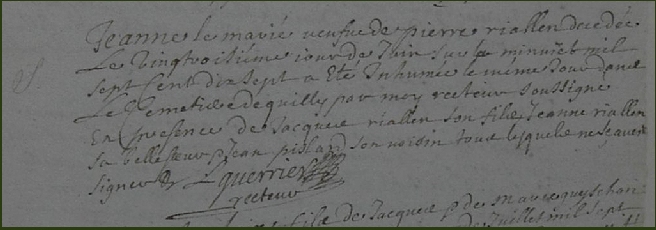 Jeanne le marié veufve de pierre riallen decedée
Le vingtroisiéme jour de Juin sur la minuict mil
sept Cent dix sept a Eté Inhumée le même Jour dans
Le Cemetiere de quilly par moy recteur soussigné
En presence de Jacques riallen son fils Jeanne riallen
sa belle soeur Jean pislard son voisin tous lesquels ne scavent
signer L guerrier
recteur
fils de Jacques
de Juillet mil sept